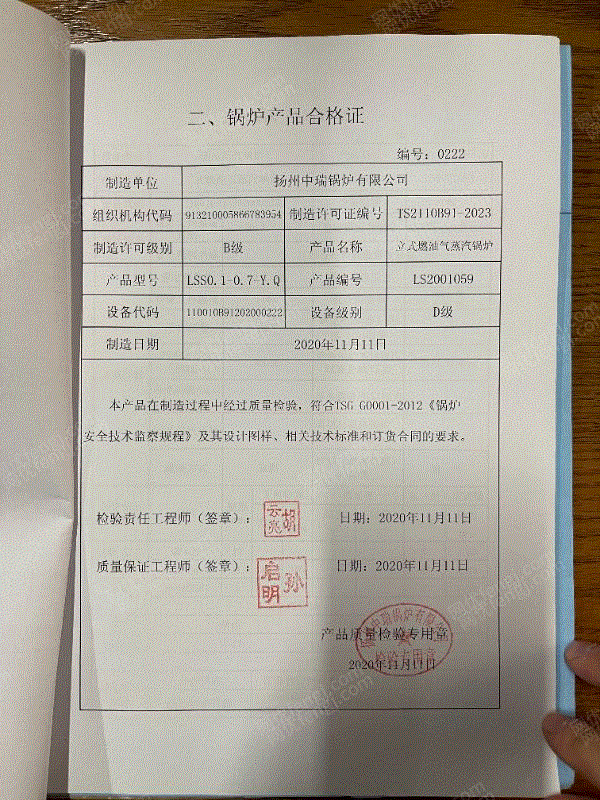 二、锅炉产品合格证
编号: 0222
制造单位 扬州中瑞锅炉有限公司
组织机构代码 913210005866783954 制造许可证编号 TS2110B91-2023
制造许可级别 B级 产品名称 立式燃油气蒸汽锅炉
产品型号 LSS0.1-0.7-Y.Q 产品编号 LS2001059
设备代码 110010B91202000222 设备级别 D级
制造日期 2020年11月11日
本产品在制造过程中经过质量检验，符合TSG G0001-2012《锅炉
安全技术监察规程》及其设计图样、相关技术标准和订货合同的要求。
检验责任工程师（签章）： 胡云兆 日期：2020年11月11日
质量保证工程师（签章）： 孙启明 日期：2020年11月11日
产品质量检验专用章
2020年11月11日